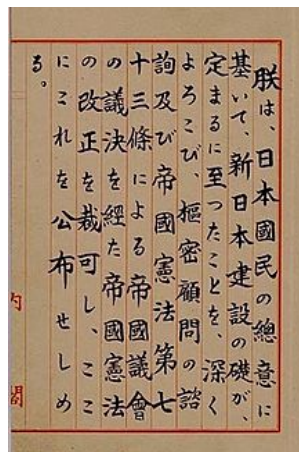 朕は、日本國民の總意に
基いて、新日本建設の礎が、
定まるに至つたことを、深く
よろこび、樞密顧問の諮
詢及び帝國憲法第七
十三條による帝國議會
の議決を經た帝國憲法
の改正を裁可し、ここ
にこれを公布せしめ
る。
内閣